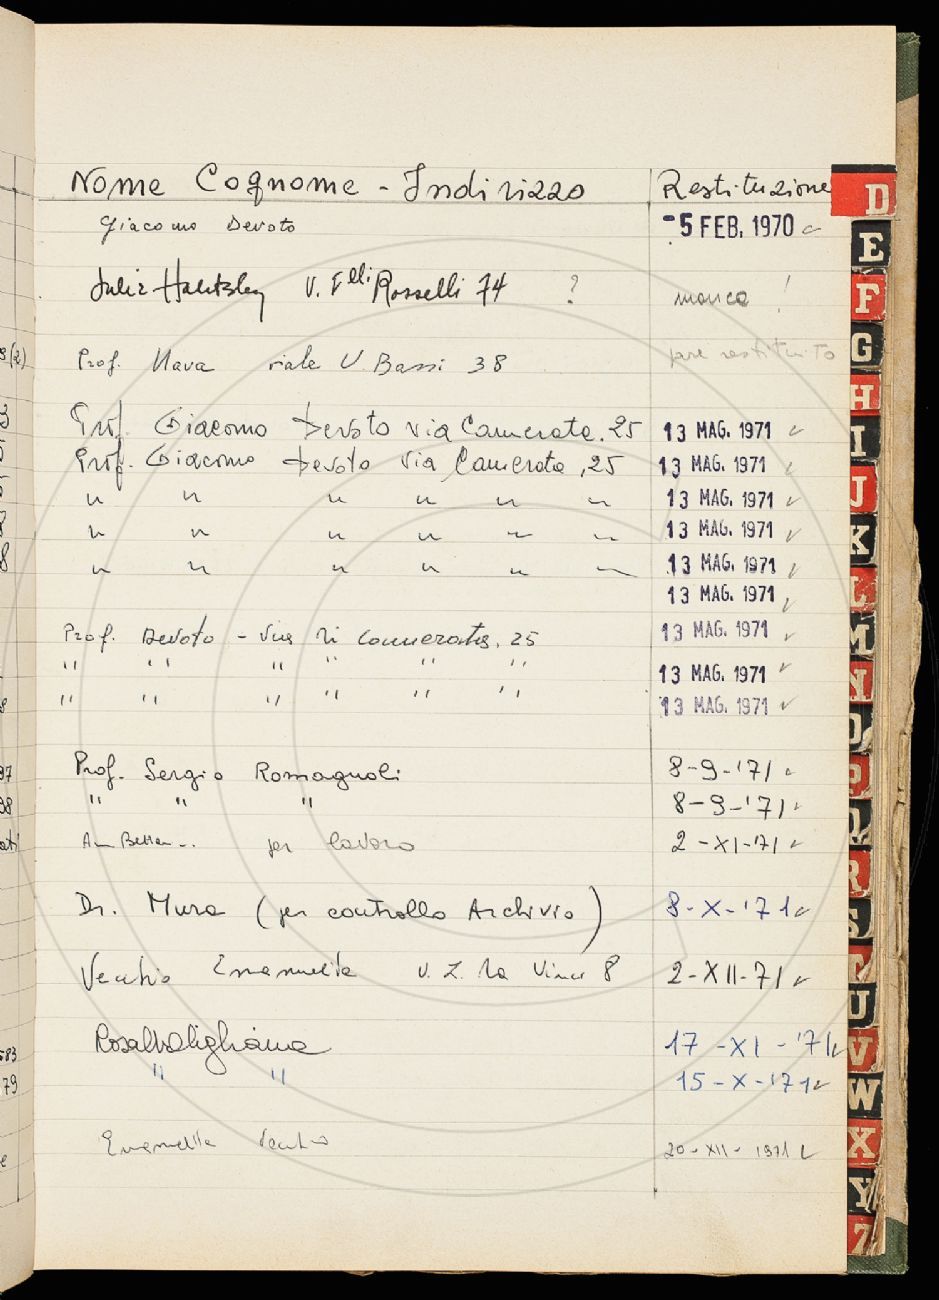 Nome Cognome - Indirizzo Restituzione
Giacomo Devoto - 5 FEB. 1970 ✓
V. F.lli Rosselli 74 ? manca !
Prof. Nava viale U. Bassi 38 pare restituito
Prof. Giacomo Devoto via Camerata, 25 13 MAG. 1971 ✓
Prof. Giacomo Devoto via Camerata, 25 13 MAG. 1971 ✓
" " " " " " 13 MAG. 1971 ✓
" " " " " " 13 MAG. 1971 ✓
" " " " " " 13 MAG. 1971 ✓
13 MAG. 1971 ✓
Prof. Devoto - Via di Camerata, 25 13 MAG. 1971 ✓
" " " " " " 13 MAG. 1971 ✓
" " " " " " 13 MAG. 1971 ✓
Prof. Sergio Romagnoli 8-9-'71 ✓
" " " 8-9-'71 ✓
per lavoro 2-XI-71 ✓
Dr. Mura (per controllo Archivio) 8-X-'71 ✓
Vecchio Emanuella V. L. da Vinci 8 2-XII-71 ✓
17-XI-'71 ✓
" " 15-X-'71 ✓
Emanuella Vecchio 20-XII-1971 ✓
D
E
F
G
H
I
J
K
L
M
N
O
P
Q
R
S
T
U
V
W
X
Y
Z